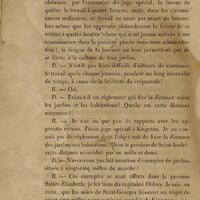 obtienne, par l'entremise du juge spécial, la faveur de
quitter le travail à quatre heures; mais, dans les circons-
tances ordinaires, ce travail ne cesse pas avant six heures:
lors même que les apprentis obtiendraient la faveur de se
retirer à quatre heures (chose qui n'est jamais arrivée à ma
connaissance dans la paroisse placée sous mon adminis-
tration), la longueur de la journée ne leur permettrait pas de
se livrer à la culture de leur jardin.
D. — N'est-il pas bien difficile d'ailleurs de continuer
le travail après chaque journée, pendant un long intervalle
de temps, à cause de la brièveté du crépuscule?
R. — Oui.
D. — Existe-t-il un règlement qui fixe la distance entre
les jardins et les habitations? Quelle est cette distance
moyenne?
R. — Je n'ai eu que peu de rapports avec les ap-
prentis ruraux. J'étais juge spécial à Kingston. Je ne con-
nais pas de règlement dont l'objet soit de fixer la distance
des jardins aux habitations. Dans la paroisse de Saint-André,
cette distance n'excédait pas un mille et demi.
D. — N'avez-vous pas fait mention d'exemples de jardins
situés à vingt-cinq milles du marché?
R. — Ces exemples se sont offerts dans la paroisse
Sainte-Elisabeth; je les tiens du capitaine Oldrey. Je sais, au
reste, que les noirs de Saint-Georges faisaient un trajet de